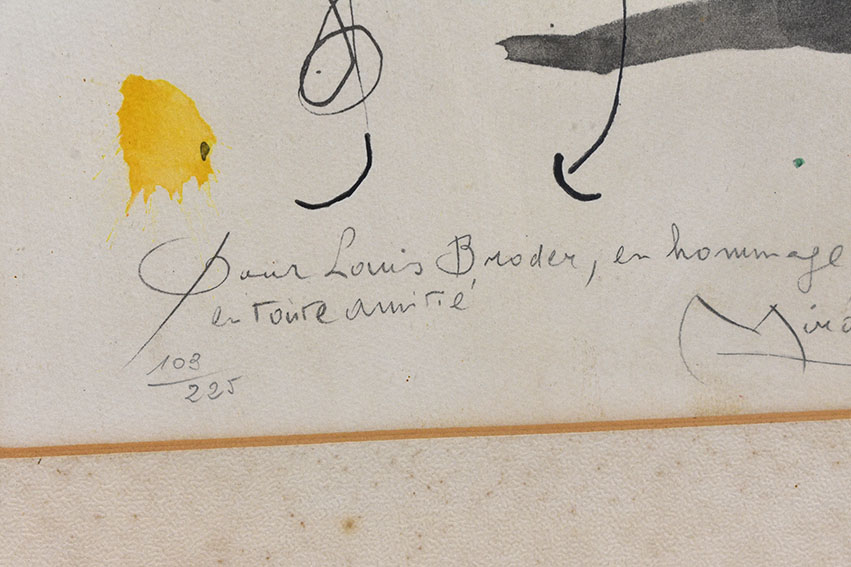 Pour Louis Broder, en hommage
en toute amitié
Miró
103
225